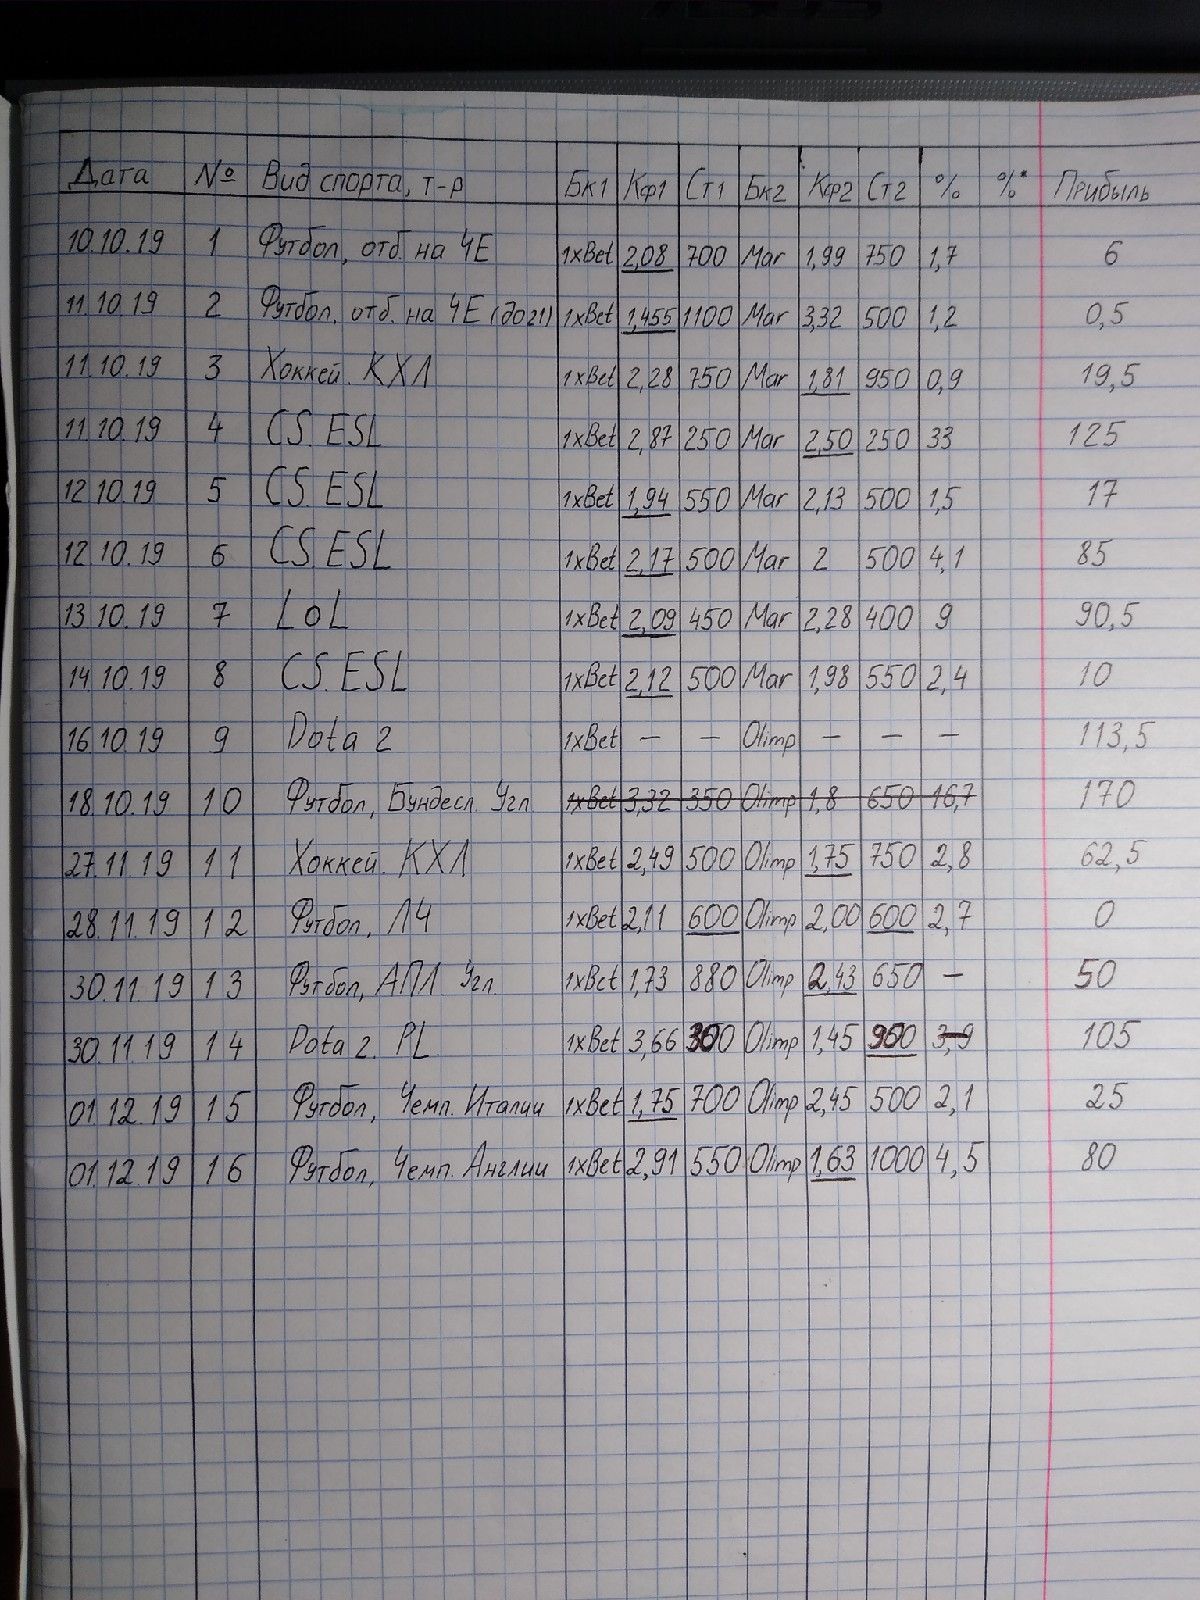 Дата № Вид спорта, т-р Бк1 Кф1 Ст1 Бк2 Кф2 Ст2 % %* Прибыль
10.10.19 1 Футбол, отб. на ЧЕ 1xBet 2,08 700 Mar 1,99 750 1,7 6
11.10.19 2 Футбол, отб. на ЧЕ (до 21) 1xBet 1,455 1100 Mar 3,32 500 1,2 0,5
11.10.19 3 Хоккей. КХЛ 1xBet 2,28 750 Mar 1,81 950 0,9 19,5
11.10.19 4 CS. ESL 1xBet 2,87 250 Mar 2,50 250 33 125
12.10.19 5 CS. ESL 1xBet 1,94 550 Mar 2,13 500 1,5 17
12.10.19 6 CS. ESL 1xBet 2,17 500 Mar 2 500 4,1 85
13.10.19 7 LoL 1xBet 2,09 450 Mar 2,28 400 9 90,5
14.10.19 8 CS. ESL 1xBet 2,12 500 Mar 1,98 550 2,4 10
16.10.19 9 Dota 2 1xBet — — Olimp — — — 113,5
18.10.19 10 Футбол, Бундесл. Угл. 1xBet 3,32 350 Olimp 1,8 650 16,7 170
27.11.19 11 Хоккей. КХЛ 1xBet 2,49 500 Olimp 1,75 750 2,8 62,5
28.11.19 12 Футбол, ЛЧ 1xBet 2,11 600 Olimp 2,00 600 2,7 0
30.11.19 13 Футбол, АПЛ Угл. 1xBet 1,73 880 Olimp 2,43 650 — 50
30.11.19 14 Dota 2. PL 1xBet 3,66 300 Olimp 1,45 950 3,9 105
01.12.19 15 Футбол, Чемп. Италии 1xBet 1,75 700 Olimp 2,45 500 2,1 25
01.12.19 16 Футбол, Чемп. Англии 1xBet 2,91 550 Olimp 1,63 1000 4,5 80